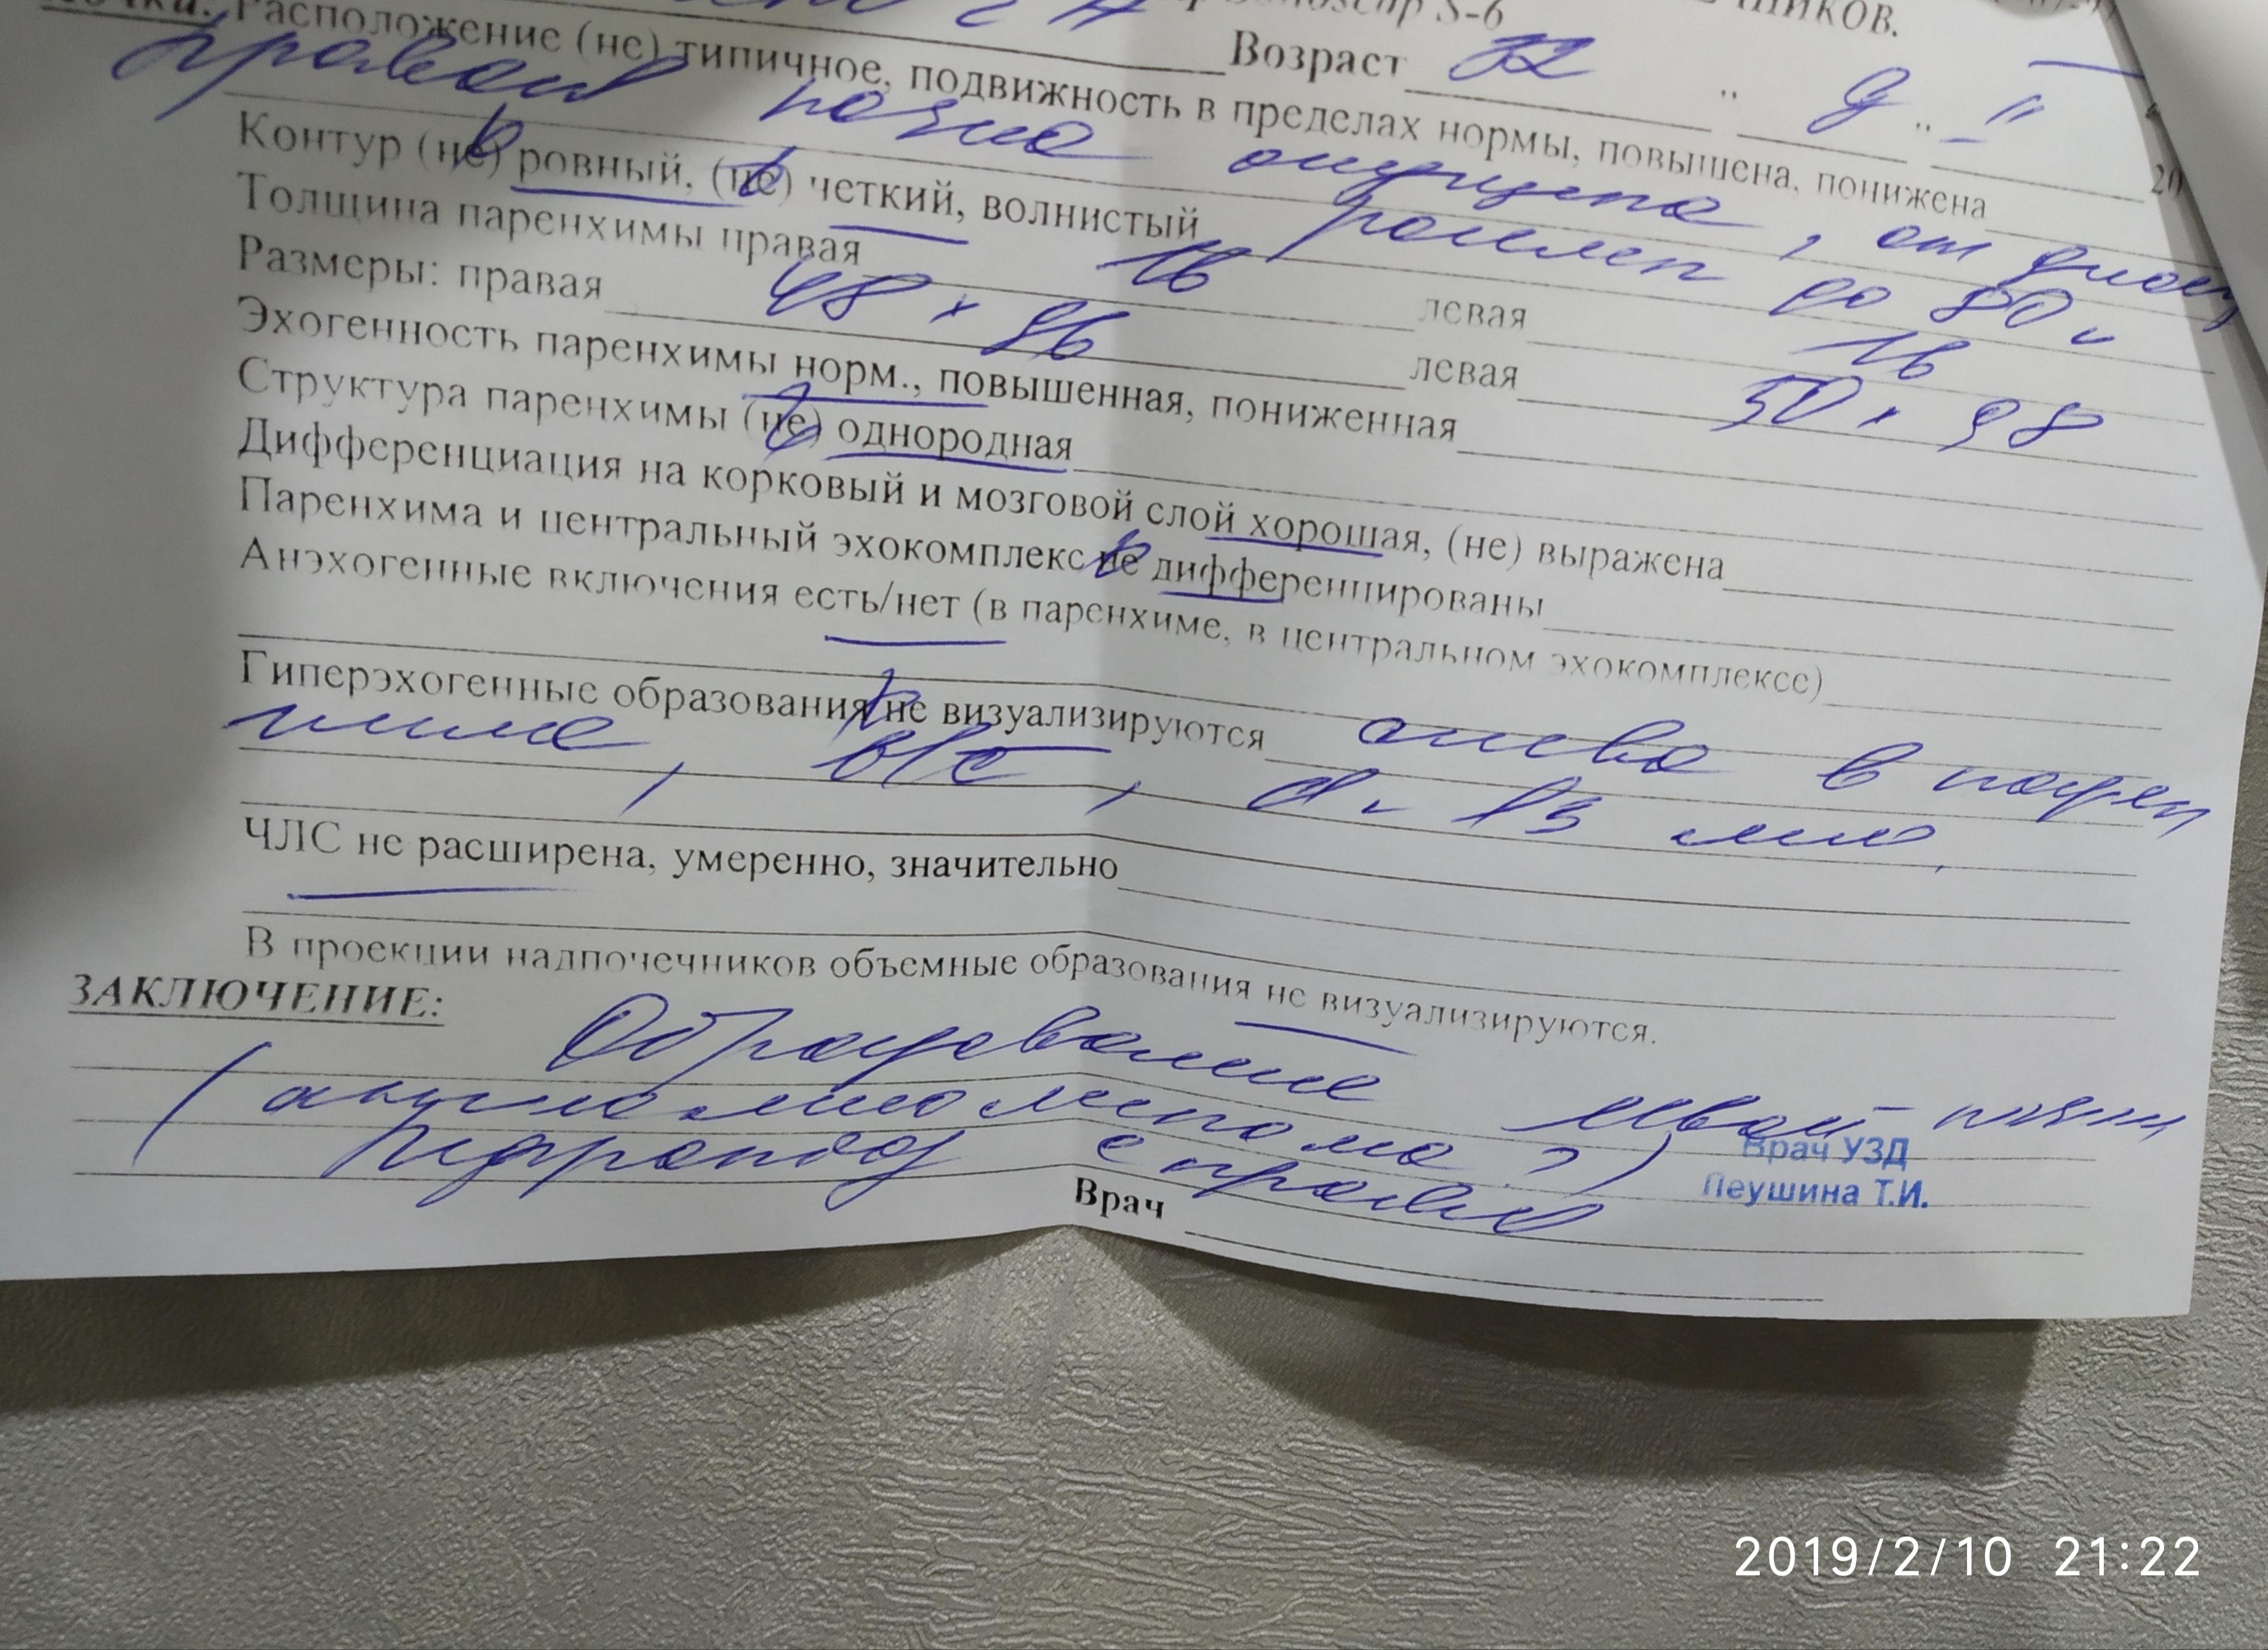 S-6
Возраст 32
Расположение (не) типичное, подвижность в пределах нормы, повышена, понижена
правая почка опущена, от диаф
Контур (не) ровный, (не) четкий, волнистый
до 80
Толщина паренхимы правая 16 левая 16
Размеры: правая 48 х 96 левая 50 х 98
Эхогенность паренхимы норм., повышенная, пониженная
Структура паренхимы (не) однородная
Дифференциация на корковый и мозговой слой хорошая, (не) выражена
Паренхима и центральный эхокомплекс не дифференцированы
Анэхогенные включения есть/нет (в паренхиме, в центральном эхокомплексе)
Гиперэхогенные образования не визуализируются слева в парен
химе, в/с, d = 13 мм.
ЧЛС не расширена, умеренно, значительно
В проекции надпочечников объемные образования не визуализируются.
ЗАКЛЮЧЕНИЕ:
Образование левой почки
(ангиомиолипома?)
Нефроптоз справа
Врач УЗД
Пеушина Т.И.
Врач
2019/2/10 21:22